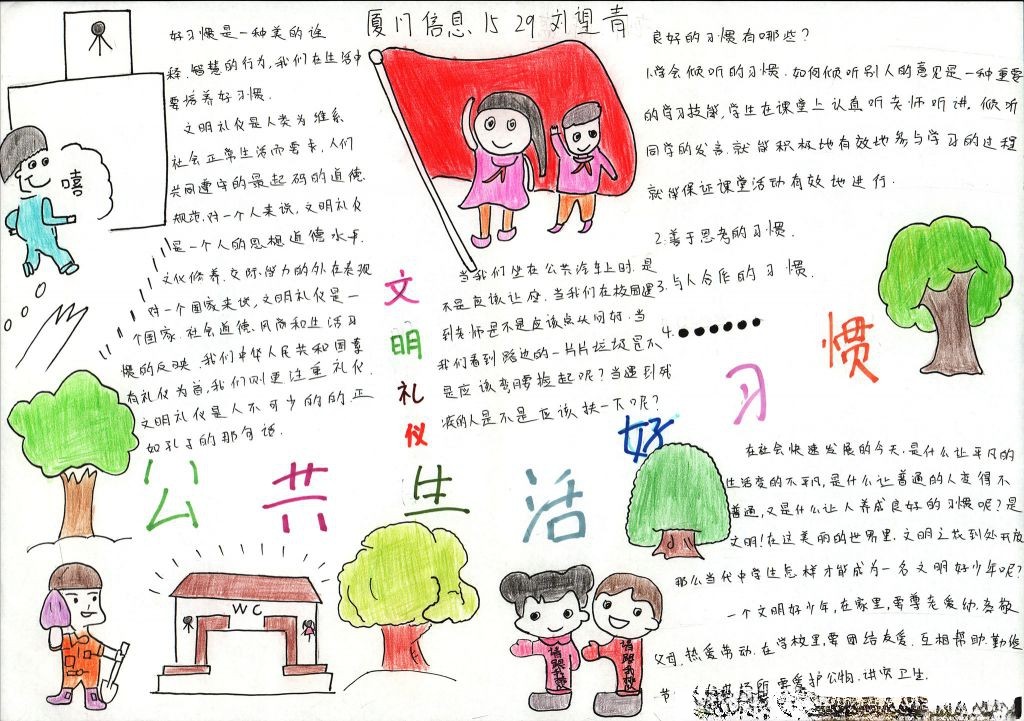 厦门信息 15 29 刘望青
好习惯是一种美的诠
释.智慧的行为,我们在生活中
要培养好习惯.
文明礼仪是人类为维系
社会正常生活而要素,人们
共同遵守的最起码的道德.
规范.对一个人来说,文明礼仪
是一个人的思想道德水平.
文化修养.交际能力的外在表现
对一个国家来说,文明礼仪是一
个国家.社会道德.风尚和生活习
惯的反映.我们中华人民共和国尊
有礼仪为首,我们则更注重礼仪.
文明礼仪是人不可少的的.正
如孔子的那句话.
嘻
文
明
礼
仪
当我们坐在公共汽车上时.是
不是应该让座.当我们在校园遇
到老师是不是应该点头问好.当
我们看到路边的一片片垃圾是不
是应该弯腰捡起呢?当遇到残
疾的人是不是应该扶一下呢?
良好的习惯有哪些?
1.学会倾听的习惯.如何倾听别人的意见是一种重要
的学习技能,学生在课堂上认真听老师听讲.倾听
同学的发言.就能积极地有效地参与学习的过程
就能保证课堂活动有效地进行.
2.善于思考的习惯.
3.与人合作的习惯.
4.●●●●●●
好
习
惯
公共生活
在社会快速发展的今天.是什么让平凡的
生活变的不平凡,是什么让普通的人变得不
普通,又是什么让人养成良好的习惯呢?是
文明!在这美丽的世界里.文明之花到处开放
那么当代中学生怎样才能成为一名文明好少年呢?
一个文明好少年,在家里,需尊老爱幼.孝敬
父母.热爱劳动.在学校里.要团结友爱.互相帮助.勤俭
节
场所.要爱护公物.讲究卫生.
WC
请跟我做
请跟我做